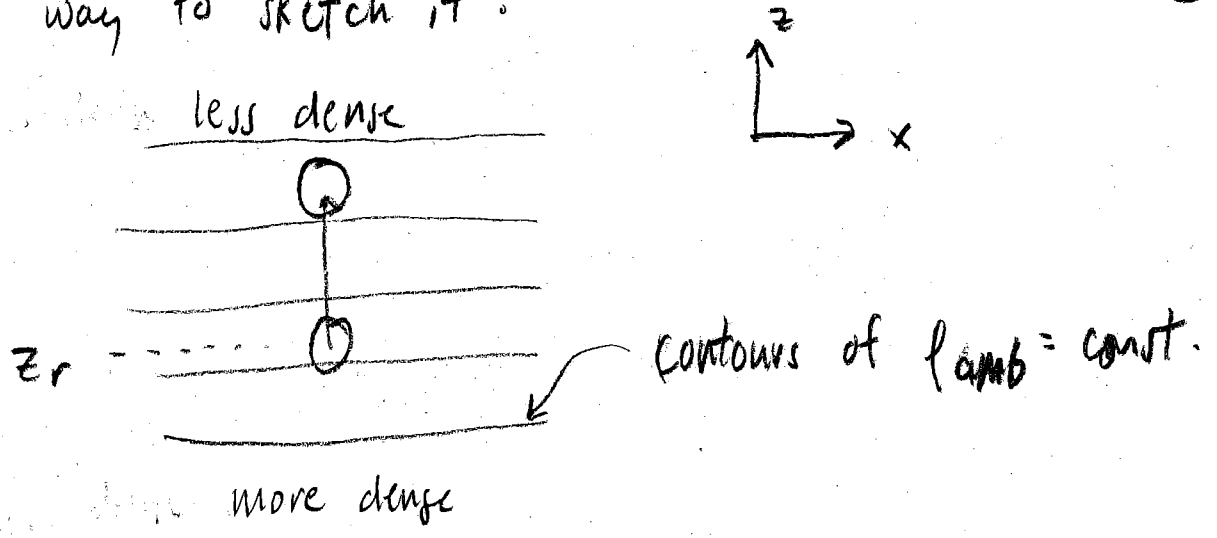 way to sketch it.
z
x
less dense
z_r
contours of ρ_amb = const.
more dense